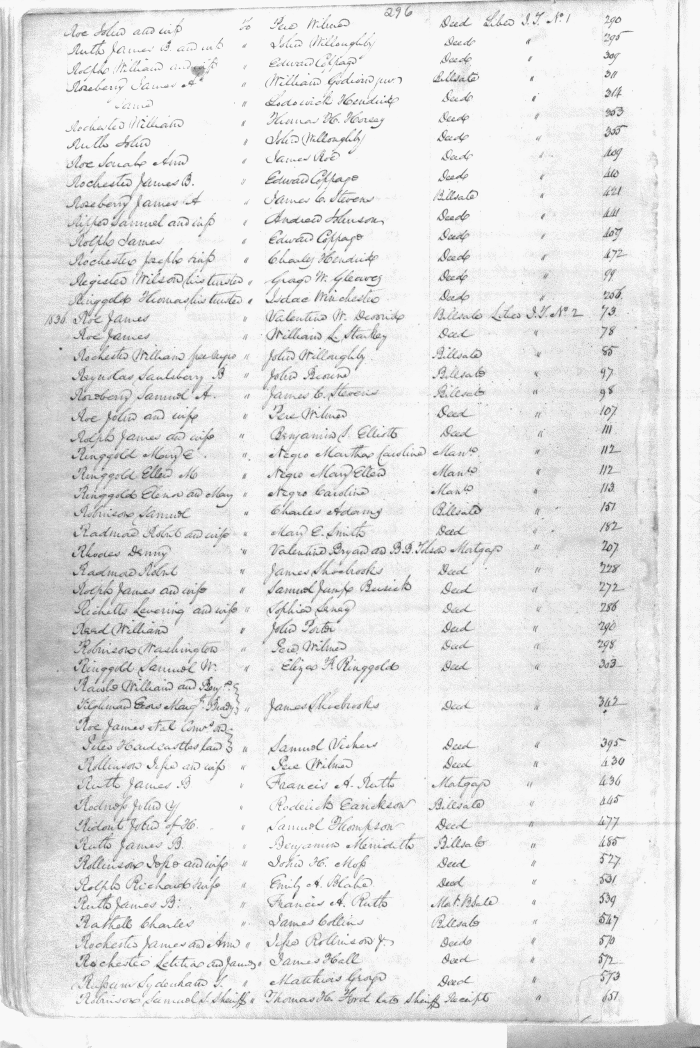 296
Roe John and wife To Pere Wilmer Deed Liber J.T. No. 1 290
Ruth James B. and wife " John Willoughby Deed 295
Rolph William and wife " Edward Coppage Deed " 309
Roseberry James A " William Billsale " 311
Same " Lodowick Hendrick Deed " 314
Rochester William " Thomas H. Deed " 303
Ruth John " John Willoughby Deed " 335
Roe Sarah Ann " James Roe Deed " 409
Rochester James B. " Edward Coppage Deed " 410
Roseberry James A " James C. Stevens Billsale " 421
Samuel and wife " Andrew Johnson Deed " 441
Rolph James " Edward Coppage Deed " 407
Rochester Joseph wife " Charles Hendrick Deed " 472
Register Wilson his trustee " George W. Gleaves Deed " 99
Ringgold Thomas his trustee " Isaac Winchester Deed " 206
1836 Roe James " Valentine W. Billsale Liber J.T. No. 2 73
Roe James " William L. Starkey Deed " 78
Rochester William free Negro " John Willoughby Billsale " 85
Reynolds Saulsberry B " John Brown Billsale " 97
Roseberry Samuel A. " James C. Stevens Billsale " 98
Roe John and wife " Pere Wilmer Deed " 107
Rolph James and wife " Benjamin S. Elliott Deed " 111
Ringgold Mary E. " Negro Martha Caroline Man.o " 112
Ringgold Ellen M " Negro Mary Ellen Man.o " 112
Ringgold Elenor and Mary " Negro Caroline Man.o " 113
Robinson Samuel " Charles Adams Billsale " 151
Radman Robert and wife " Mary E. Smith Deed " 182
Rhodes Denny " Valentine Bryan and B.B. Mortgage " 207
Radman Robert " James Shoebrooks Deed " 228
Rolph James and wife " Samuel Deed " 272
Ricketts Levering and wife " Sophia Deed " 286
Reed William " John Porter Deed " 296
Robinson Washington " Pere Wilmer Deed " 298
Ringgold Samuel W. " Eliza A. Ringgold Deed " 303
William and Benj.n
" James Shoebrooks Deed " 342
Roe James
Peter Hardcastle " Samuel Vickers Deed " 395
Rollinson Jesse and wife " Pere Wilmer Deed " 430
Ruth James B " Francis A. Ruth Mortgage " 436
John " Roderick Billsale " 445
John of H. " Samuel Thompson Deed " 477
Ruth James B. " Benjamin Merideth Billsale " 485
Rollinson Jesse and wife " John H. Moss Deed " 527
Rolph Richard wife " Emily A. Blake Deed " 531
Ruth James B. " Francis A. Ruth " 539
Rathell Charles " James Collins Billsale " 547
Rochester James and Ann " Jesse Rollinson Deed " 570
Rochester Letitia and James " James Hall Deed " 572
Russum Sydenham T. " Matthias Deed " 573
Robinson Samuel S. Sheriff " Thomas H. Ford late Sheriff Receipt " 651